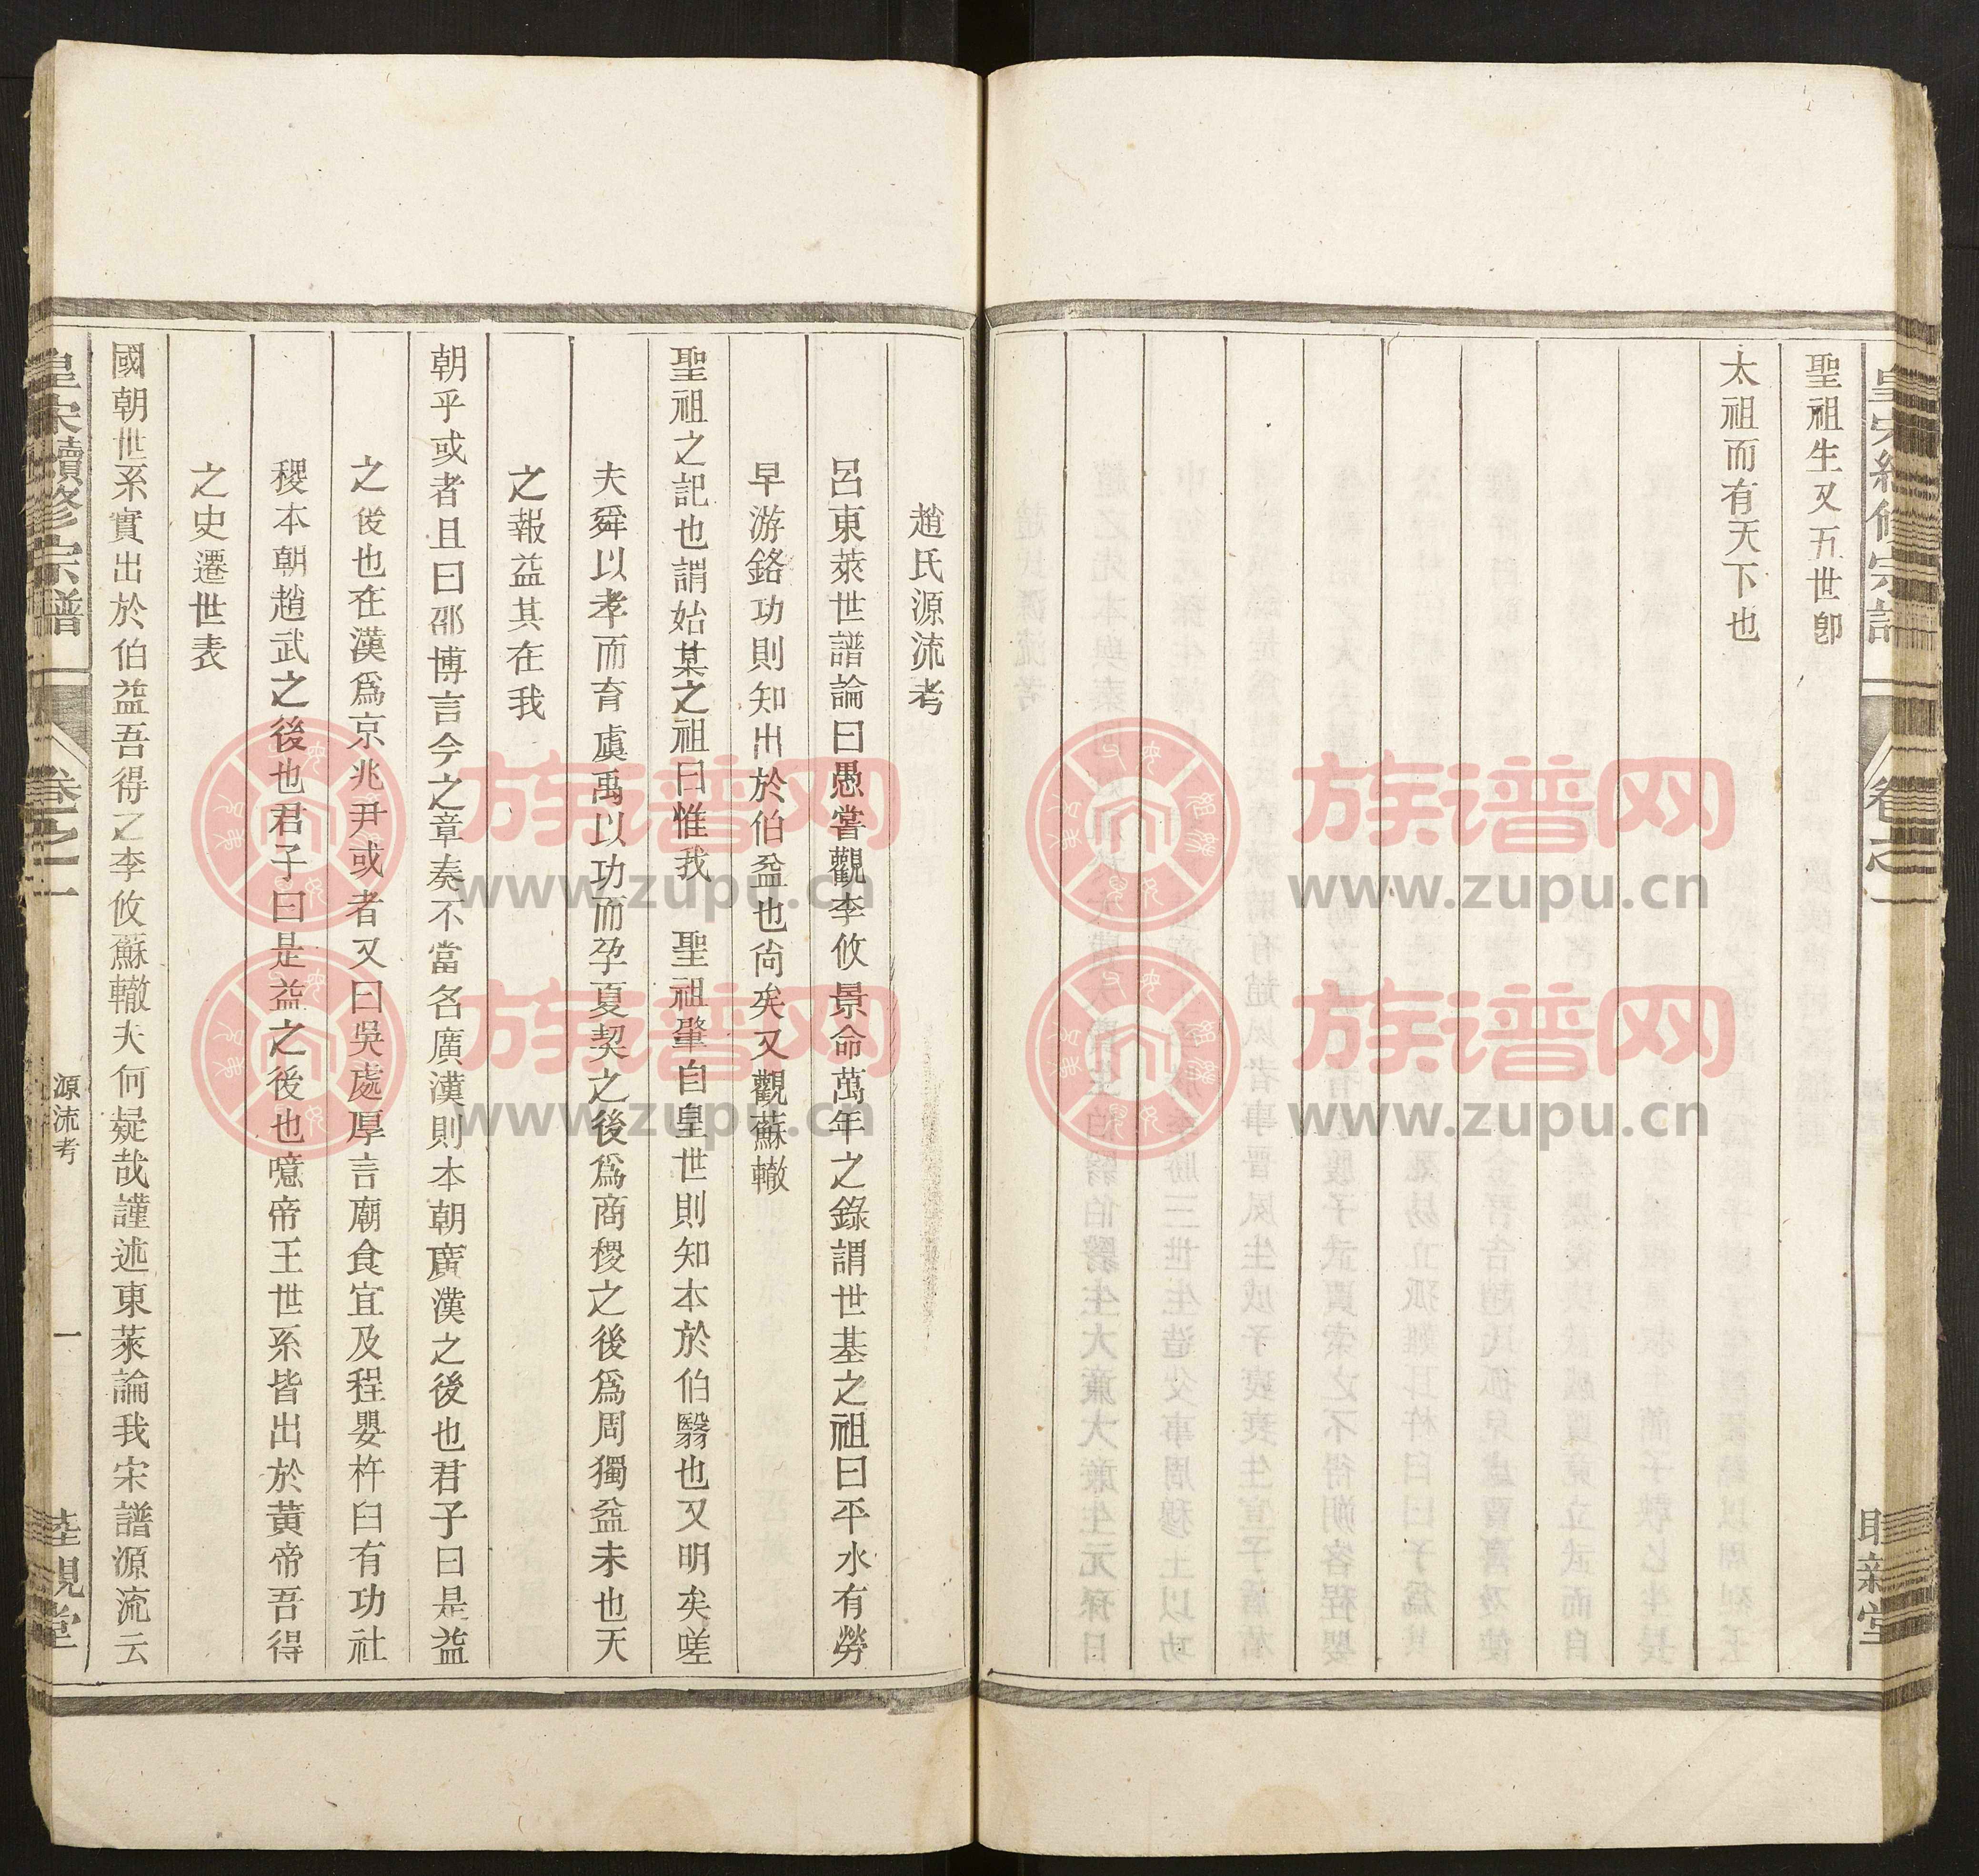 聖祖生又五世卽
太祖而有天下也
趙氏源流考
呂東萊世譜論曰愚嘗觀李攸景命萬年之錄謂世基之祖曰平水有勞
早游銘功則知出於伯益也尙矣又觀蘇轍
聖祖之記也謂始某之祖曰惟我 聖祖肇自皇世則知本於伯翳也又明矣嗟
夫舜以孝而育虞禹以功而孕夏契之後爲商稷之後爲周獨益未也天
之報益其在我
朝乎或者且曰邵博言今之章奏不當名廣漢則本朝廣漢之後也君子曰是益
之後也在漢爲京兆尹或者又曰吳處厚言廟食宜及程嬰杵臼有功社
稷本朝趙武之後也君子曰是益之後也噫帝王世系皆出於黃帝吾得
之史遷世表
國朝世系實出於伯益吾得之李攸蘇轍夫何疑哉謹述東萊論我宋譜源流云
皇宋續修宗譜
卷之一
源流考
一
睦親堂
族谱网
www.zupu.cn
族谱网
www.zupu.cn
族谱网
www.zupu.cn
族谱网
www.zupu.cn